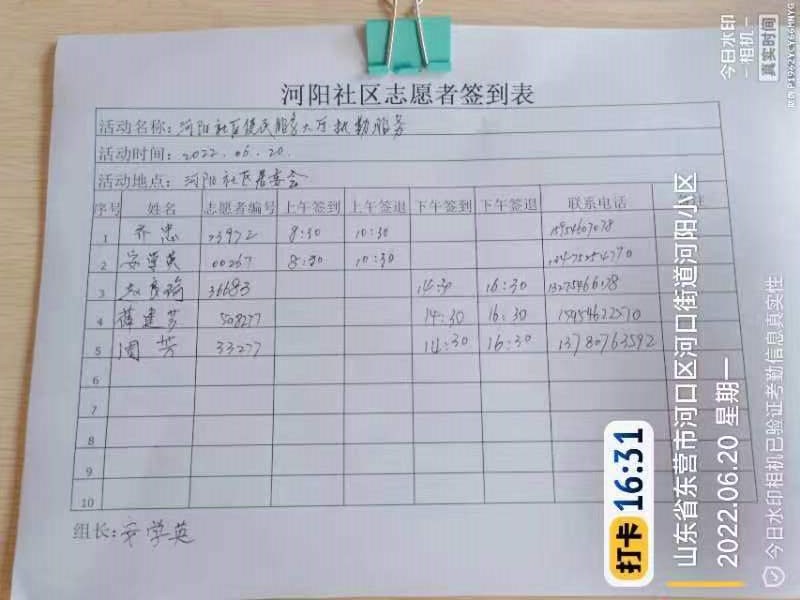 河阳社区志愿者签到表
活动名称：河阳社区便民服务大厅执勤服务
活动时间：2022.06.20.
活动地点：河阳社区居委会
序号 姓名 志愿者编号 上午签到 上午签退 下午签到 下午签退 联系电话
1 齐忠 23972 8:30 10:30
2 安学英 00267 8:30 10:30
3 36683 14:30 16:30
4 薛建芳 508277 14:30 16:30
5 周芳 33277 14:30 16:30 13780763592
6
7
8
9
10
组长：安学英
打卡 16:31
山东省东营市河口区河口街道河阳小区
2022.06.20 星期一
今日水印相机已验证考勤信息真实性
今日水印
相机
真实时间